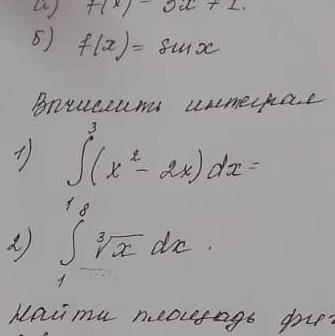 а) f(x) = 3x + 1.
б) f(x) = sin x
Вычислить интеграл
1) ∫₁³ (x² - 2x) dx =
2) ∫₁⁸ ∛x dx .
Найти площадь фи-